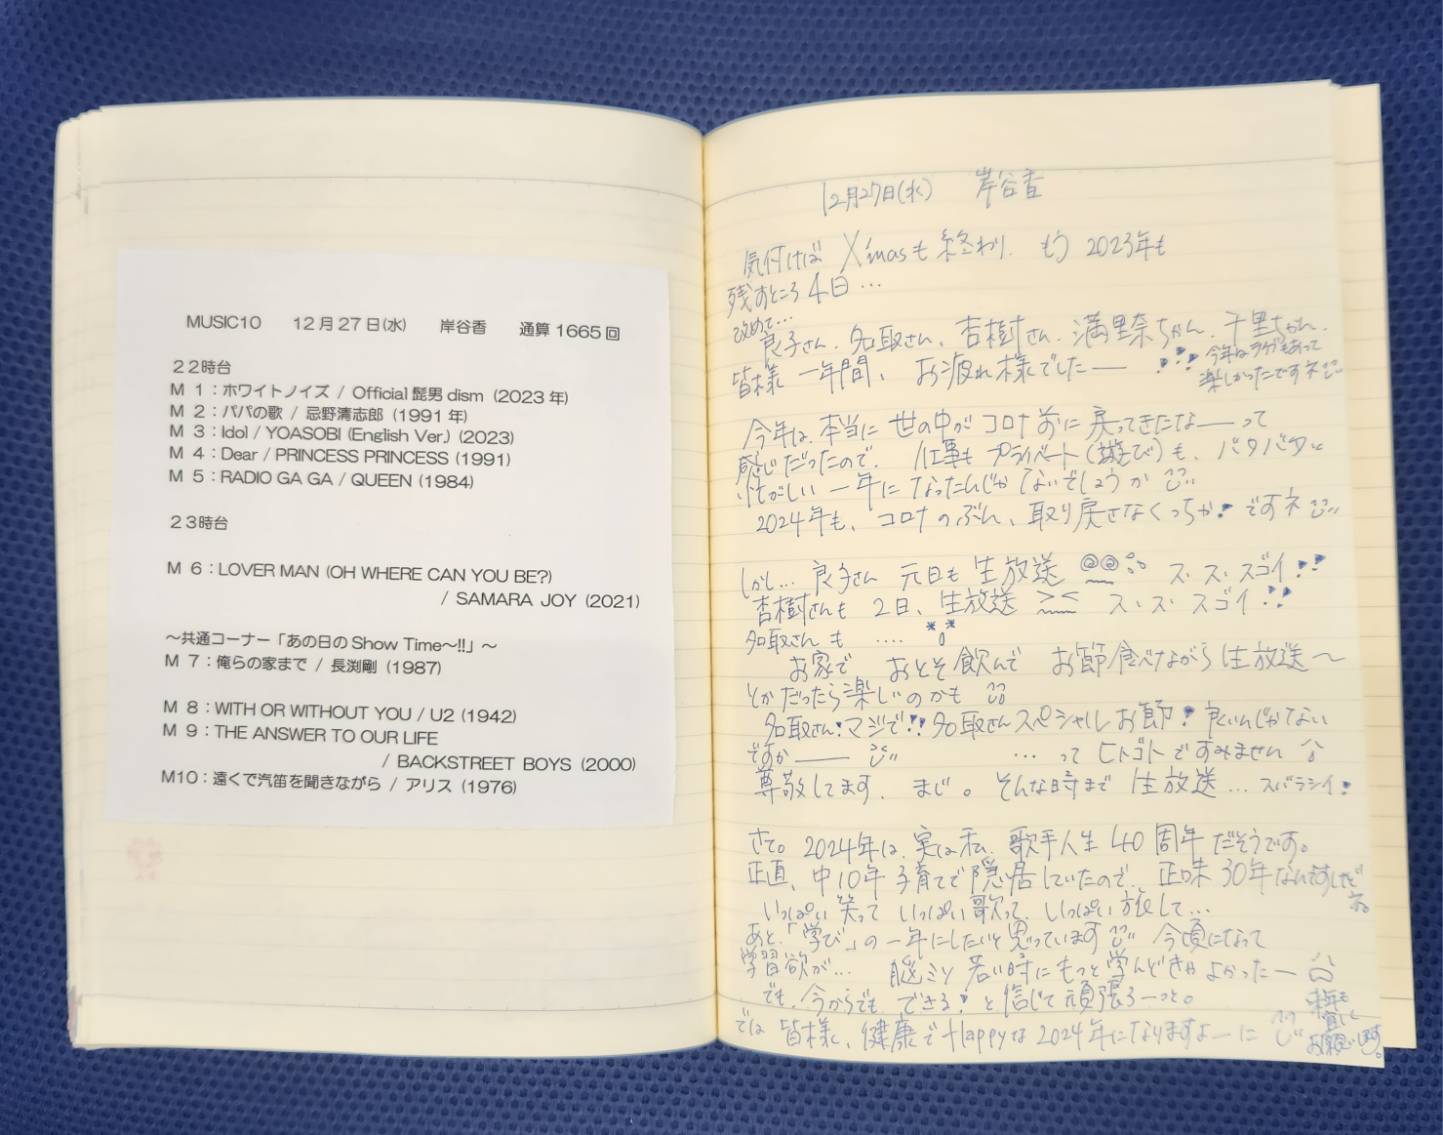 MUSIC10　12月27日(水)　岸谷香　通算1665回
22時台
M 1：ホワイトノイズ / Official髭男dism（2023年）
M 2：パパの歌 / 忌野清志郎（1991年）
M 3：Idol / YOASOBI (English Ver.)（2023）
M 4：Dear / PRINCESS PRINCESS（1991）
M 5：RADIO GA GA / QUEEN（1984）
23時台
M 6：LOVER MAN (OH WHERE CAN YOU BE?)
/ SAMARA JOY（2021）
～共通コーナー「あの日のShow Time～!!」～
M 7：俺らの家まで / 長渕剛（1987）
M 8：WITH OR WITHOUT YOU / U2（1942）
M 9：THE ANSWER TO OUR LIFE
/ BACKSTREET BOYS（2000）
M10：遠くで汽笛を聞きながら / アリス（1976）
12月27日(水)　岸谷香
気付けば X'masも終わり. もう 2023年も
残すところ 4日…
改めて…
良子さん. 名取さん、杏樹さん. 満里奈ちゃん. 千里ちゃん.
皆様 一年間、お疲れ様でしたー !!!
今年はライブもあって
楽しかったですネ
今年は、本当に 世の中が コロナ前に 戻ってきたなーって
感じだったので. 仕事も プライベート(遊び)も、バタバタと
忙がしい 一年に なったんじゃ ないでしょうか
2024年も、コロナのぶん、取り戻さなくっちゃ! ですネ
しかし… 良子さん 元日も 生放送 ス・ス・スゴイ!!
杏樹さんも 2日、生放送 >< ス・ス・スゴイ!!
名取さん も ….
お家で おとそ飲んで お節食べながら 生放送〜
とかだったら楽しいのかも
名取さん!マジで!!名取さんスペシャルお節! 良いんじゃない
ですかー … って ヒトゴトですみません
尊敬してます. まじ。そんな時まで 生放送… スバラシイ!
さて。2024年は、実は私、歌手人生 40周年だそうです。
正直、中10年 子育てで 隠居していたので、正味 30年なんですけど
ネ。
いっぱい 笑って いっぱい 歌って、いっぱい 旅して…
あと、「学び」の一年にしたいと思っています 今頃になって
学習欲が… 脳ミソ 若い時に もっと 学んどきゃ よかったー
でも、今からでも できる! と信じて 頑張ろーっと。
では 皆様、健康で Happyな 2024年になりますよーに
来年も
宜しく
お願いします。